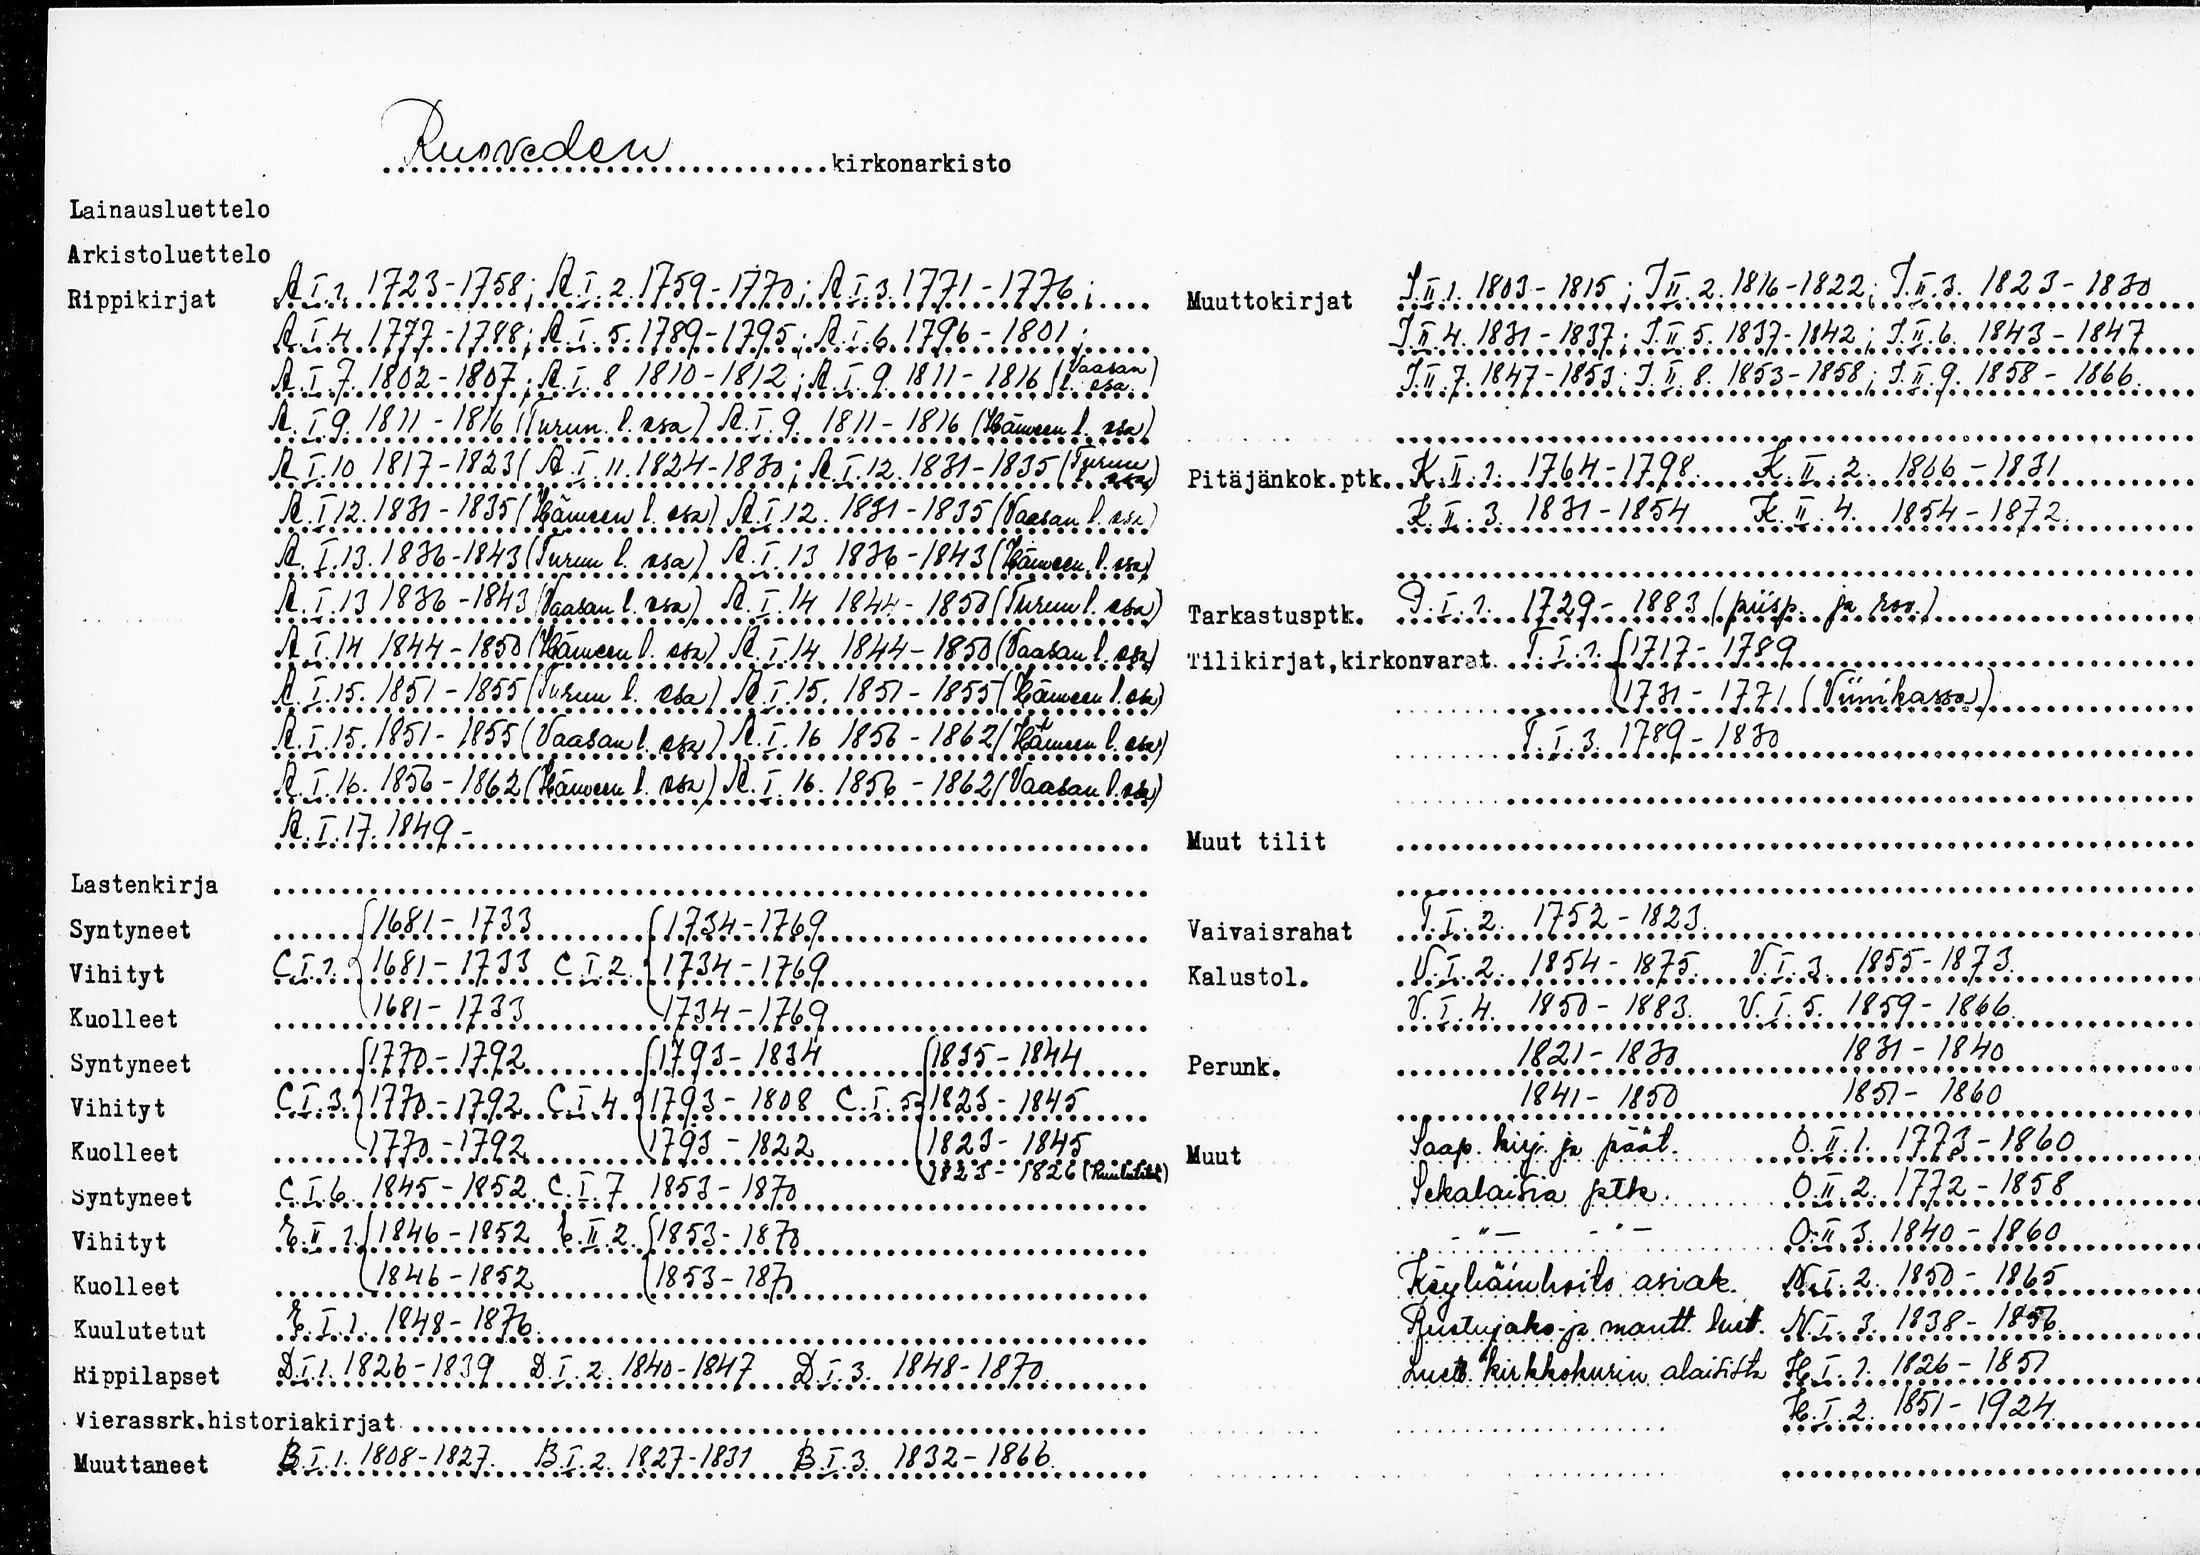 Ruoveden kirkonarkisto
Lainausluettelo
Arkistoluettelo
Rippikirjat A.I.1. 1723-1758; A.I.2. 1759-1770; A.I.3. 1771-1776;
A.I.4 1777-1788; A.I.5. 1789-1795; A.I.6. 1796-1801;
A.I.7. 1802-1807; A.I.8 1810-1812; A.I.9. 1811-1816 (Vaasan l. osa)
A.I.9. 1811-1816 (Turun l. osa) A.I.9. 1811-1816 (Hämeen l. osa)
A.I.10 1817-1823( A.I.11. 1824-1830; A.I.12. 1831-1835 (Turun l. osa)
A.I.12. 1831-1835 (Hämeen l. osa) A.I.12. 1831-1835 (Vaasan l. osa)
A.I.13. 1836-1843 (Turun l. osa) A.I.13 1836-1843 (Hämeen l. osa)
A.I.13 1836-1843 (Vaasan l. osa) A.I.14 1844-1850 (Turun l. osa)
A.I.14 1844-1850 (Hämeen l. osa) A.I.14 1844-1850 (Vaasan l. osa)
A.I.15. 1851-1855 (Turun l. osa) A.I.15. 1851-1855 (Hämeen l. osa)
A.I.15. 1851-1855 (Vaasan l. osa) A.I.16 1856-1862 (Hämeen l. osa)
A.I.16. 1856-1862 (Hämeen l. osa) A.I.16. 1856-1862 (Vaasan l. osa)
A.I.17. 1849-
Lastenkirja
Syntyneet 1681-1733 1734-1769
Vihityt C.I.1. 1681-1733 C.I.2. 1734-1769
Kuolleet 1681-1733 1734-1769
Syntyneet 1770-1792 1793-1834 1835-1844
Vihityt C.I.3. 1770-1792 C.I.4. 1793-1808 C.I.5. 1823-1845
Kuolleet 1770-1792 1793-1822 1823-1845
1823-1826
Syntyneet C.I.6. 1845-1852. C.I.7 1853-1870
Vihityt E.II.1. 1846-1852 E.II.2. 1853-1870
Kuolleet 1846-1852 1853-1870
Kuulutetut E.I.1. 1848-1876.
Rippilapset D.I.1. 1826-1839 D.I.2. 1840-1847 D.I.3. 1848-1870
Vierassrk.historiakirjat
Muuttaneet B.I.1. 1808-1827. B.I.2. 1827-1831 B.I.3. 1832-1866.
Muuttokirjat J.II.1. 1803-1815; J.II.2. 1816-1822; J.II.3. 1823-1830
J.II.4. 1831-1837; J.II.5. 1837-1842; J.II.6. 1843-1847
J.II.7. 1847-1853; J.II.8. 1853-1858; J.II.9. 1858-1866.
Pitäjänkok.ptk. K.II.1. 1764-1798. K.II.2. 1866-1831
K.II.3. 1831-1854 K.II.4. 1854-1872.
Tarkastusptk. P.I.1. 1729-1883 (piisp. ja rov.)
Tilikirjat,kirkonvarat T.I.1. 1717-1789
1731-1771 (Viinikassa)
T.I.3. 1789-1830
Muut tilit
Vaivaisrahat T.I.2. 1752-1823.
Kalustol. V.I.2. 1854-1875. V.I.3. 1855-1873.
V.I.4. 1850-1883. V.I.5. 1859-1866.
Perunk. 1821-1830 1831-1840
1841-1850 1851-1860
Muut Saap. kirj. ja päät. O.II.1. 1773-1860
Sekalaisia ptk. O.II.2. 1772-1858
-"- -"- O.II.3. 1840-1860
Köyhäinhoito asiak. N.I.2. 1850-1865
Ruotujako- ja mantt. luet. N.I.3. 1838-1856.
Luett. kirkkokurin alaisista H.I.1. 1826-1851
H.I.2. 1851-1924.